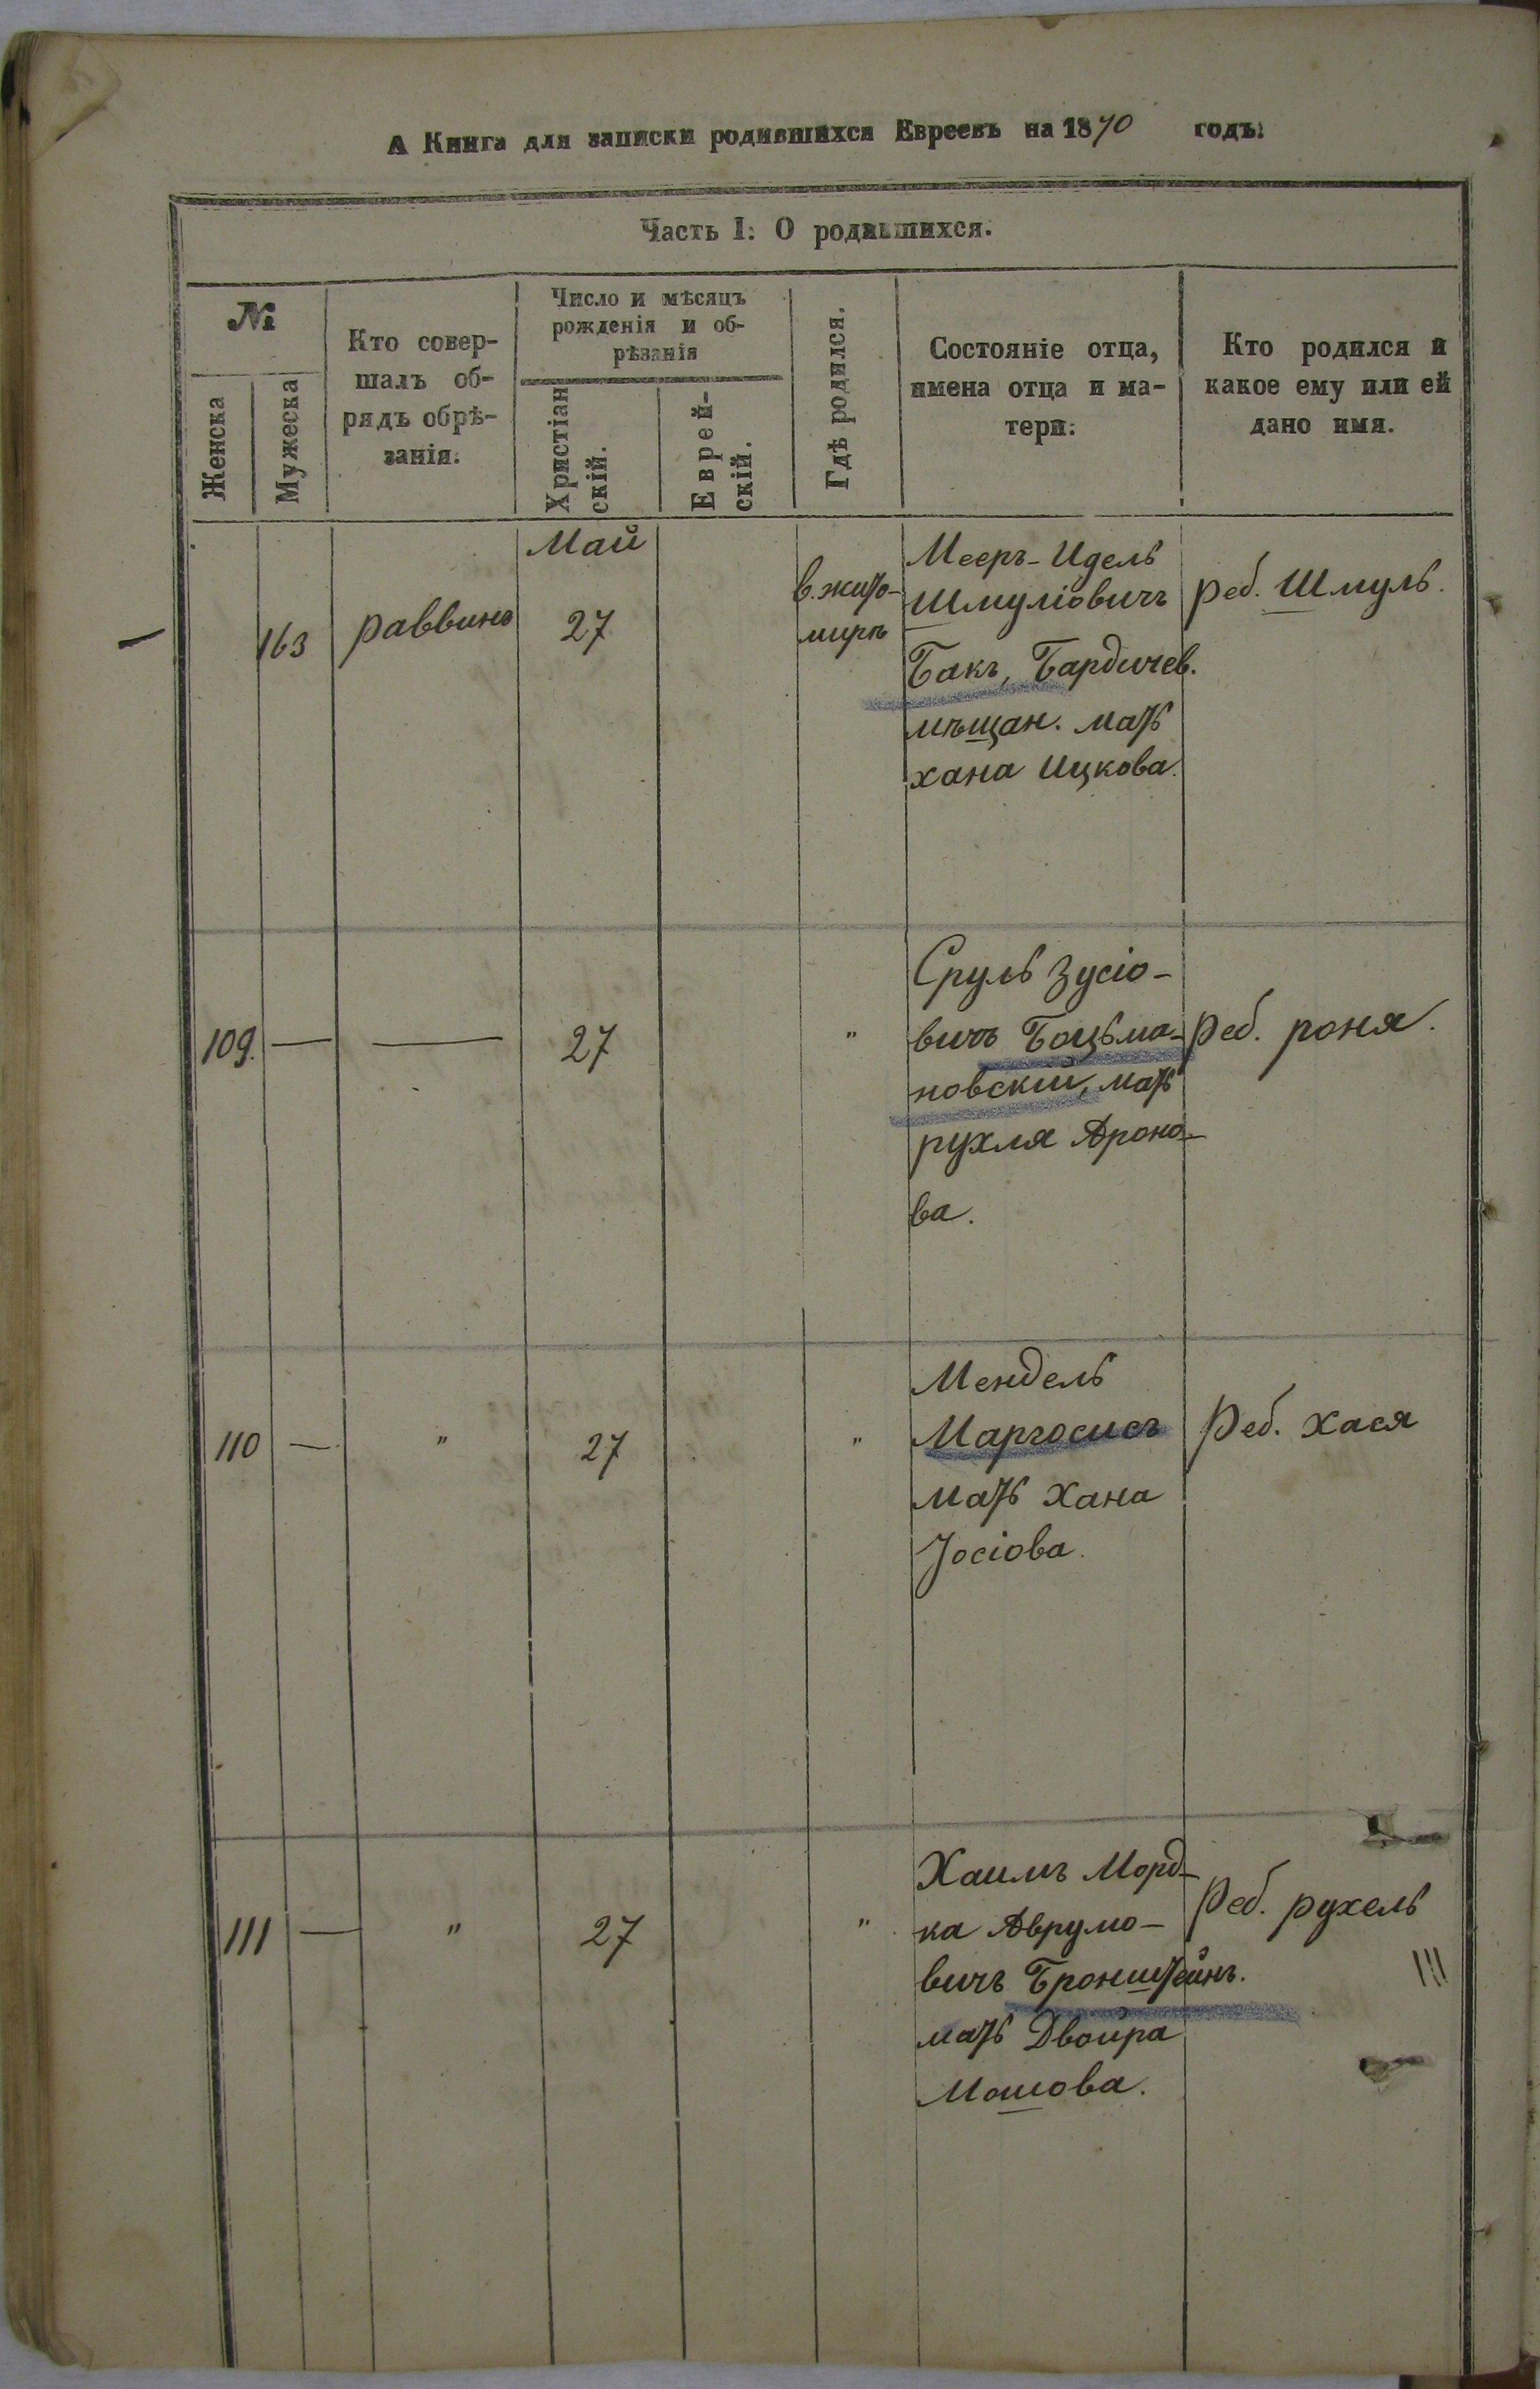 А Книга для записки родившихся Евреевъ на 1870 годъ:
Часть I: О родившихся.
№
Женска
Мужеска
Кто совер-
шалъ об-
рядъ обрѣ-
занія.
Число и мѣсяцъ
рожденія и об-
рѣзанія
Христіан
скій.
Еврей-
скій.
Гдѣ родился.
Состояніе отца,
имена отца и ма-
тери.
Кто родился и
какое ему или ей
дано имя.
163
раввинъ
Май
27
в. Жито-
мирѣ
Мееръ-Идель
Шмуліовичъ
Бакъ, Бардичев.
мѣщан. мать
хана Ицкова.
реб. Шмуль.
109.
—
—
27
"
Сруль Зусіо-
вичъ Боцьма-
новскій, мать
рухля Ароно-
ва.
Реб. роня.
110
—
"
27
"
Мендель
Маргосисъ
мать Хана
Іосіова.
Реб. Хася
111
—
"
27
"
Хаимъ Морд-
ка Аврумо-
вичъ Бронштейнъ.
мать Двойра
Мошова.
Реб. рухель